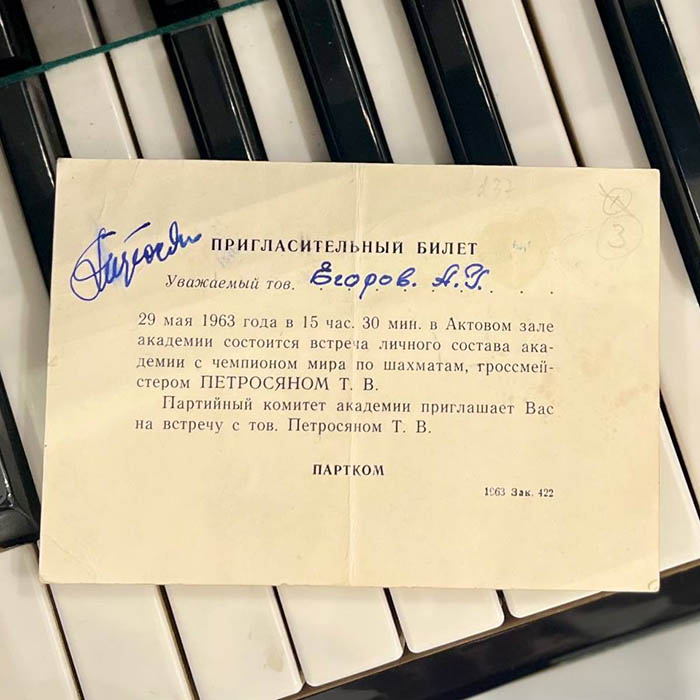 ПРИГЛАСИТЕЛЬНЫЙ БИЛЕТ
Уважаемый тов. Егоров. А.Г.
29 мая 1963 года в 15 час. 30 мин. в Актовом зале
академии состоится встреча личного состава ака-
демии с чемпионом мира по шахматам, гроссмей-
стером ПЕТРОСЯНОМ Т. В.
Партийный комитет академии приглашает Вас
на встречу с тов. Петросяном Т. В.
ПАРТКОМ
1963 Зак. 422
3